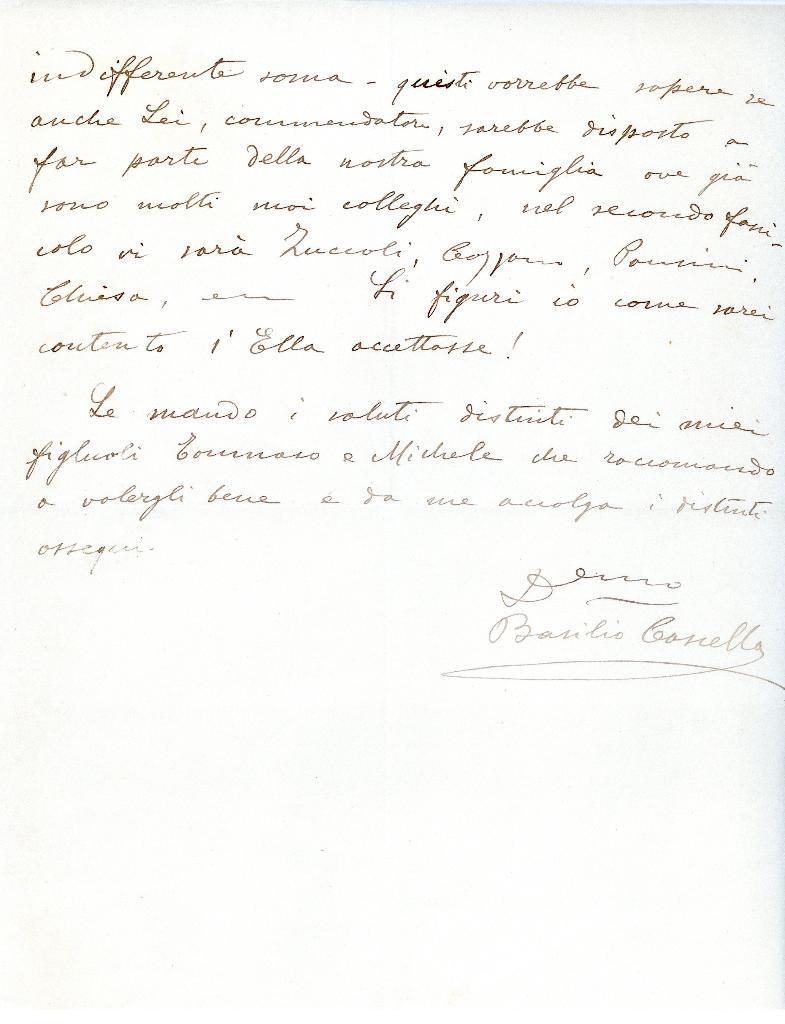 indifferente soma - questi vorrebbe sapere se
anche Lei, commendatore, sarebbe disposto a
far parte della nostra famiglia ove già
sono molti suoi colleghi, nel secondo fasci-
colo vi sarà Zuccoli, Cozzani, Panzini,
Chiesa, ecc Si figuri io come sarei
contento s'Ella accettasse!
Le mando i saluti distinti dei miei
figluoli Tommaso e Michele che raccomando
a volergli bene e da me accolga i distinti
ossequi.
Devmo
Basilio Cascella